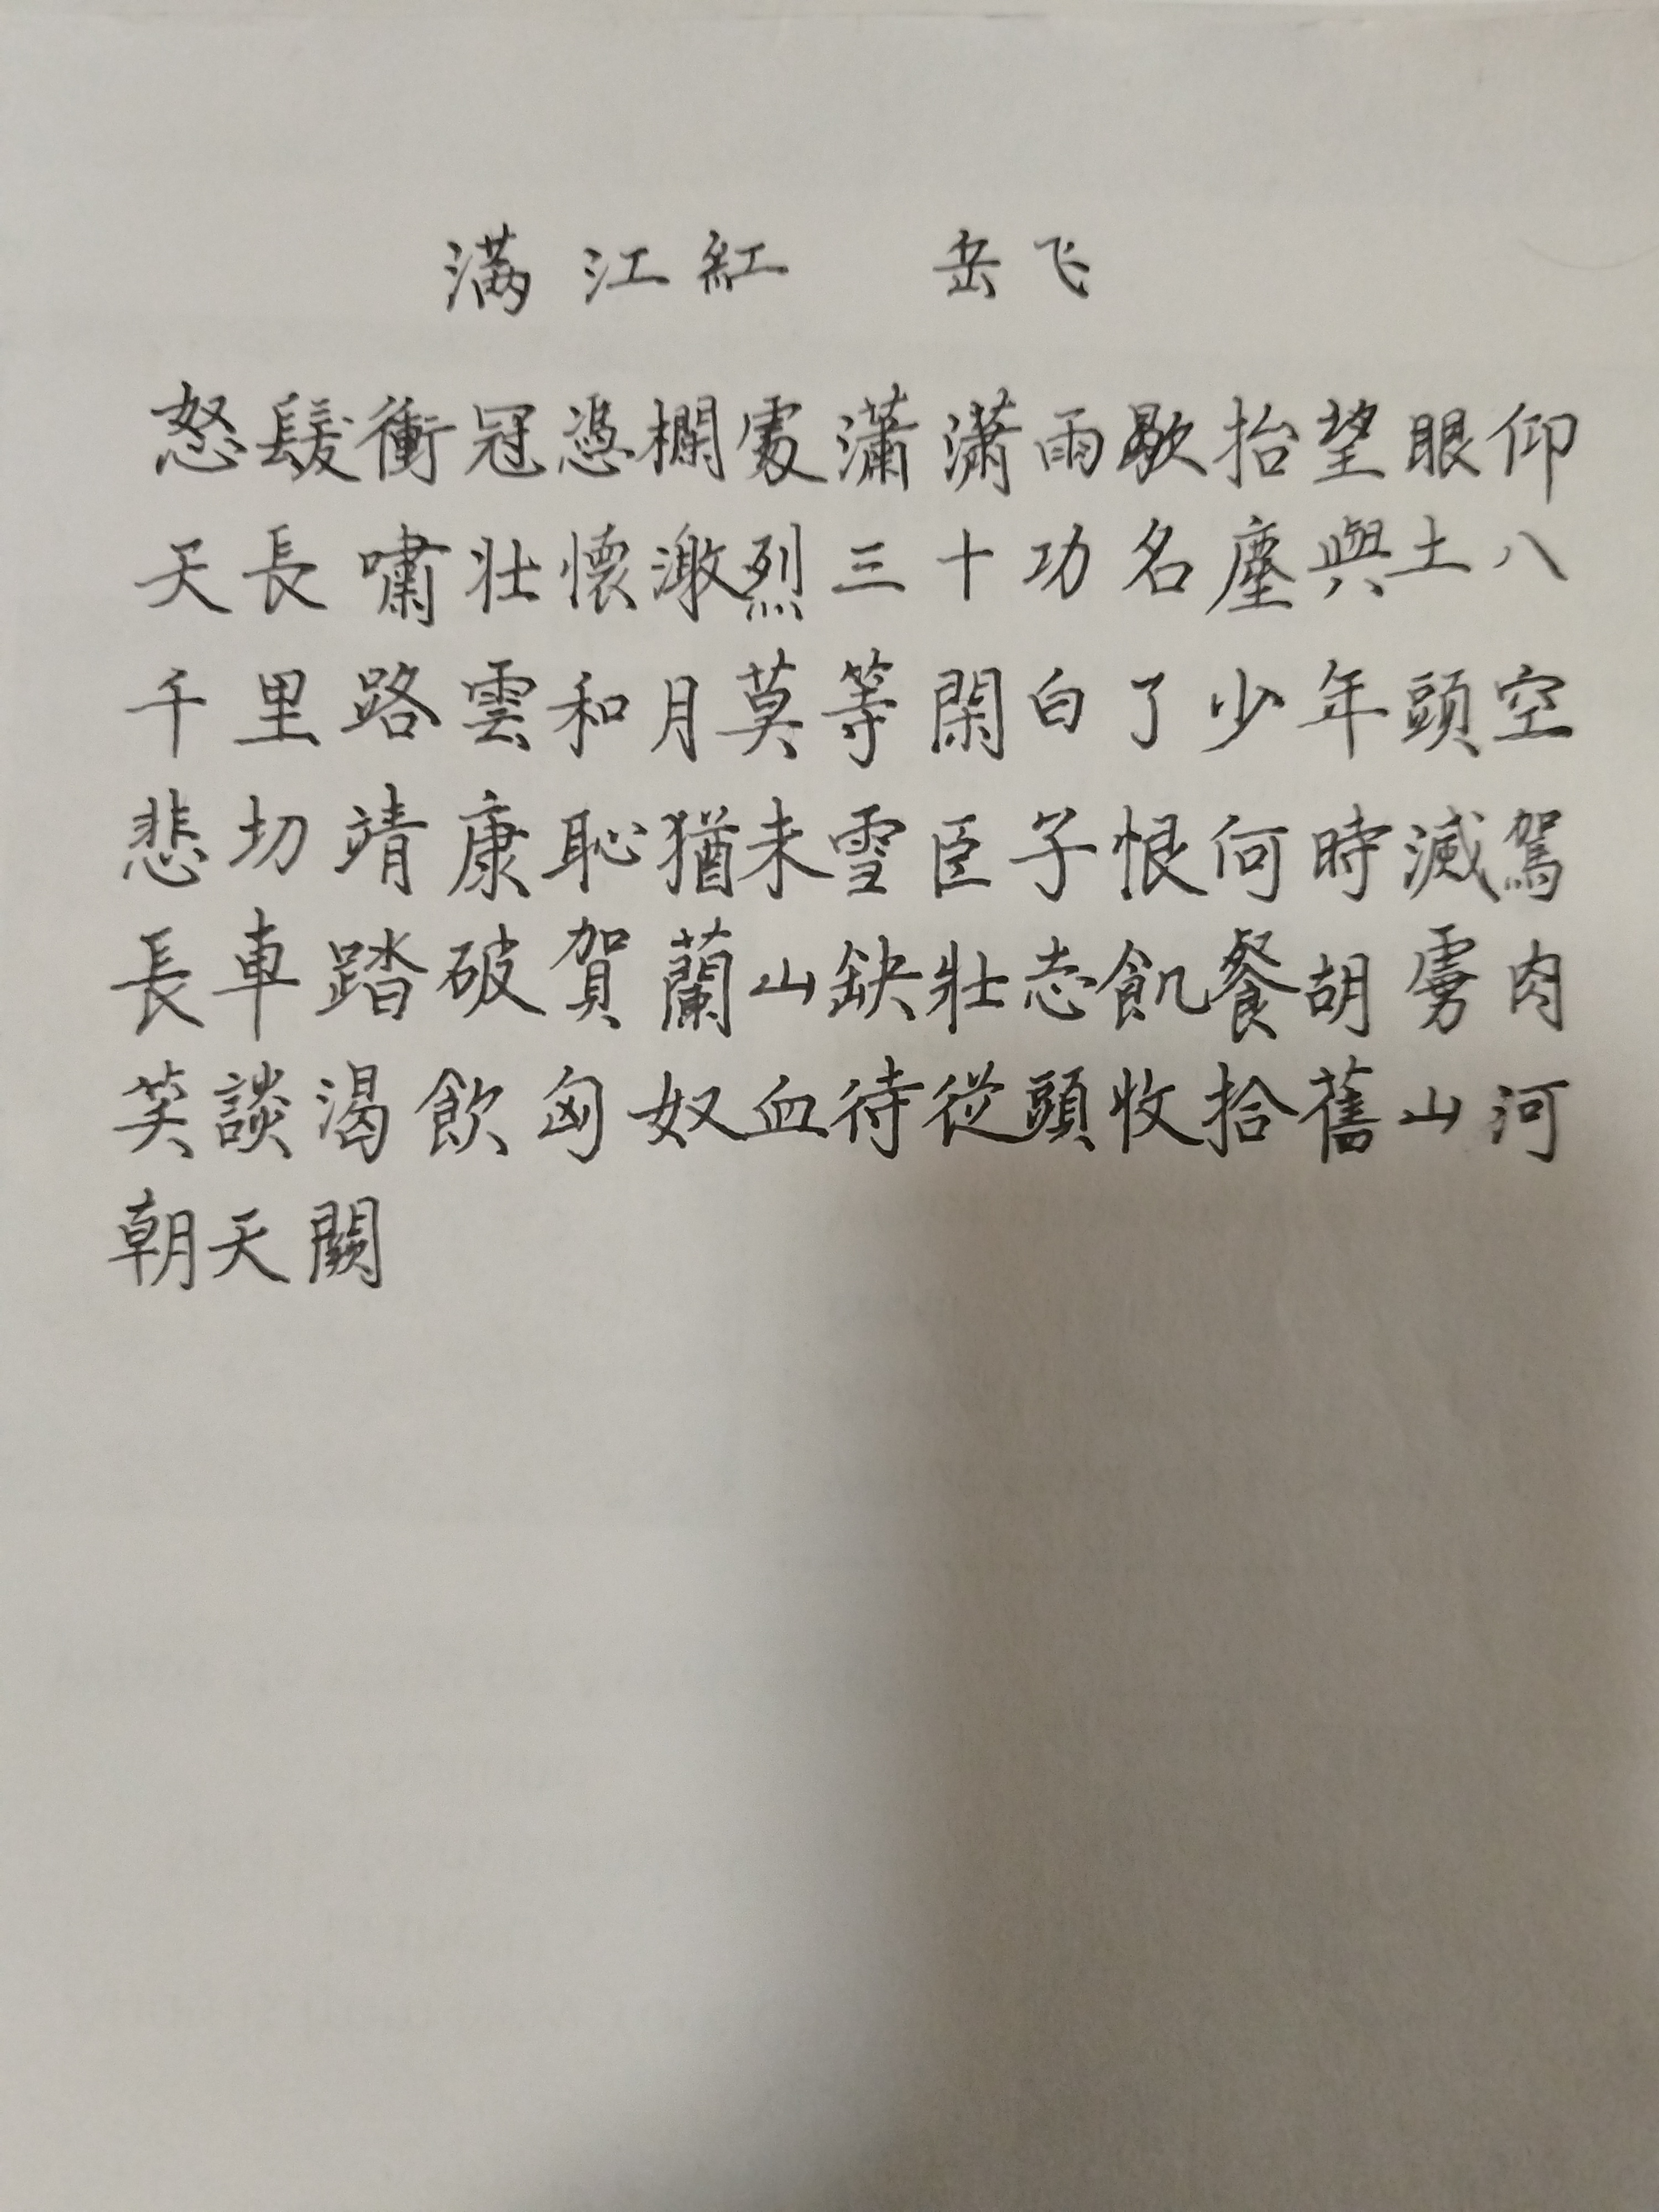 满江紅 岳飞
怒髮衝冠憑欄處瀟潇雨歇抬望眼仰
天長嘯壯懷激烈三十功名塵與土八
千里路雲和月莫等閑白了少年頭空
悲切靖康恥猶未雪臣子恨何時滅駕
長車踏破賀蘭山缺壯志飢餐胡虜肉
笑談渴飲匈奴血待從頭收拾舊山河
朝天闕